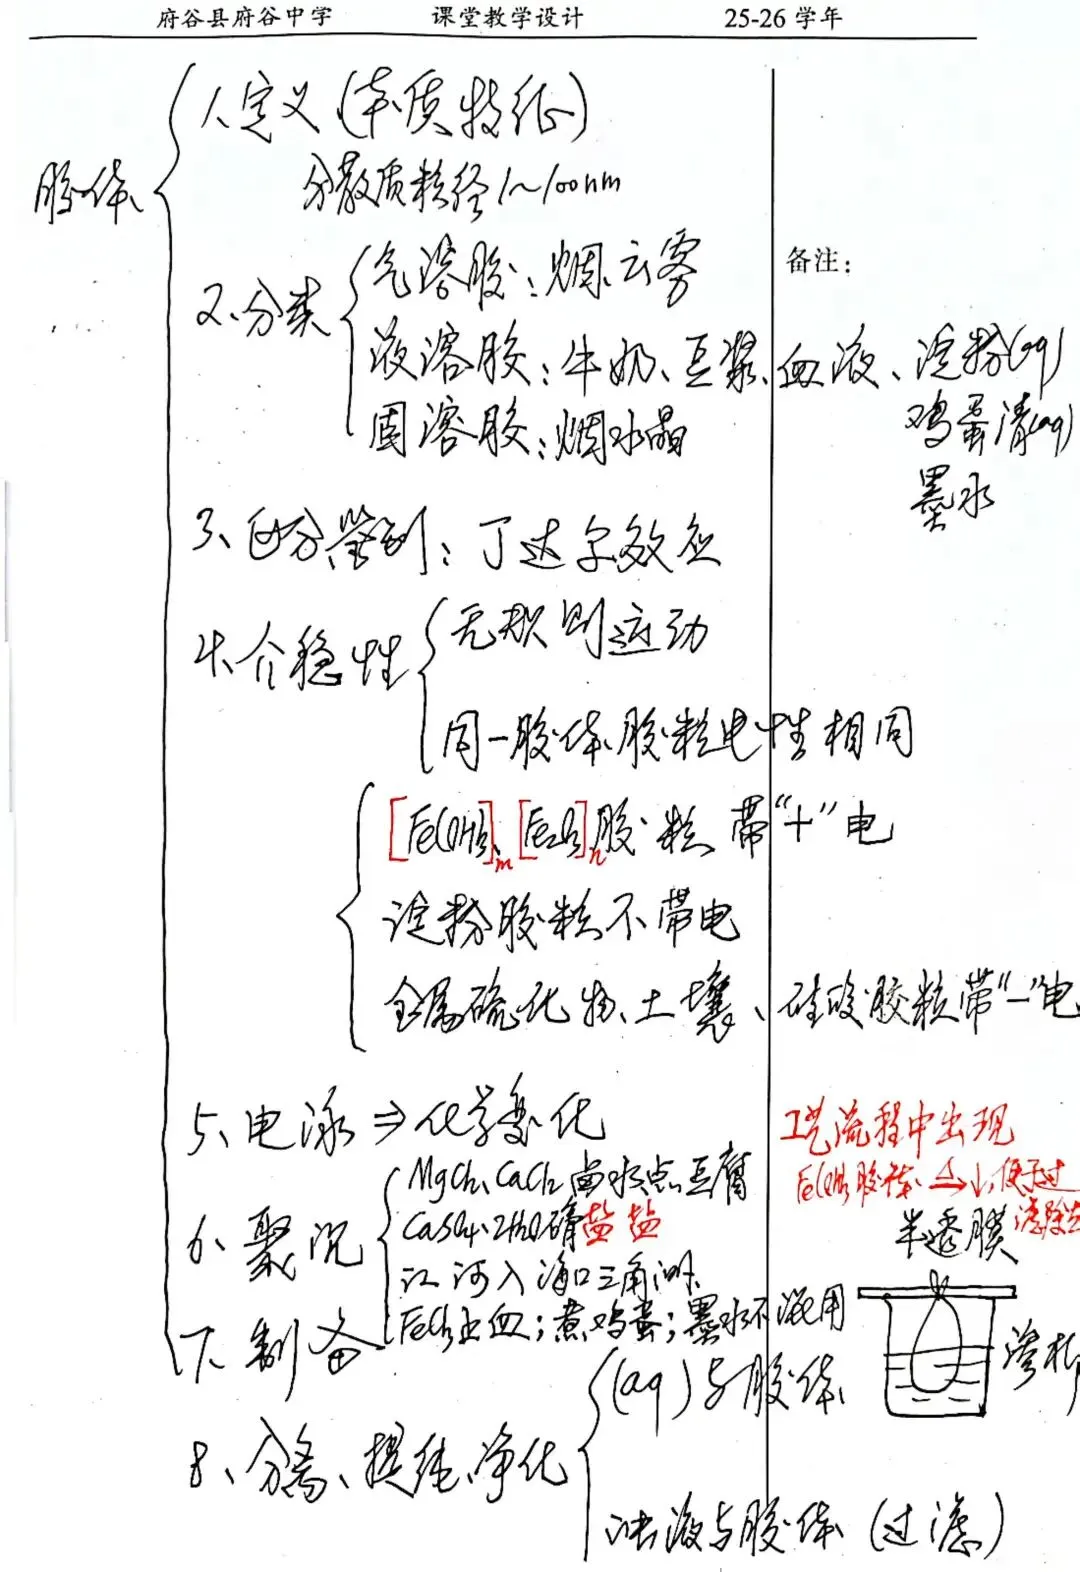 府谷县府谷中学 课堂教学设计 25-26 学年
胶体
1、定义(本质特征)
分散质粒径1~100nm
备注：
2、分类
气溶胶：烟、云、雾
液溶胶：牛奶、豆浆、血液、淀粉(aq)
鸡蛋清(aq)
固溶胶：烟水晶
墨水
3、区分鉴别：丁达尔效应
4、介稳性
无规则运动
同一胶体胶粒电性相同
[Fe(OH)3]m、[Fe2O3]n胶粒 带“+”电
淀粉胶粒不带电
金属硫化物、土壤、硅酸胶粒带“-”电
5、电泳⇒化学变化
工艺流程中出现
Fe(OH)3胶体 △→↓,便于过滤除去
6、聚沉
MgCl2、CaCl2 卤水点豆腐
CaSO4·2H2O 盐 盐
江河入海口三角洲
FeCl3止血；煮鸡蛋；墨水不混用
7、制备
半透膜
渗析
8、分离、提纯、净化
(aq)与胶体
浊液与胶体 (过滤)